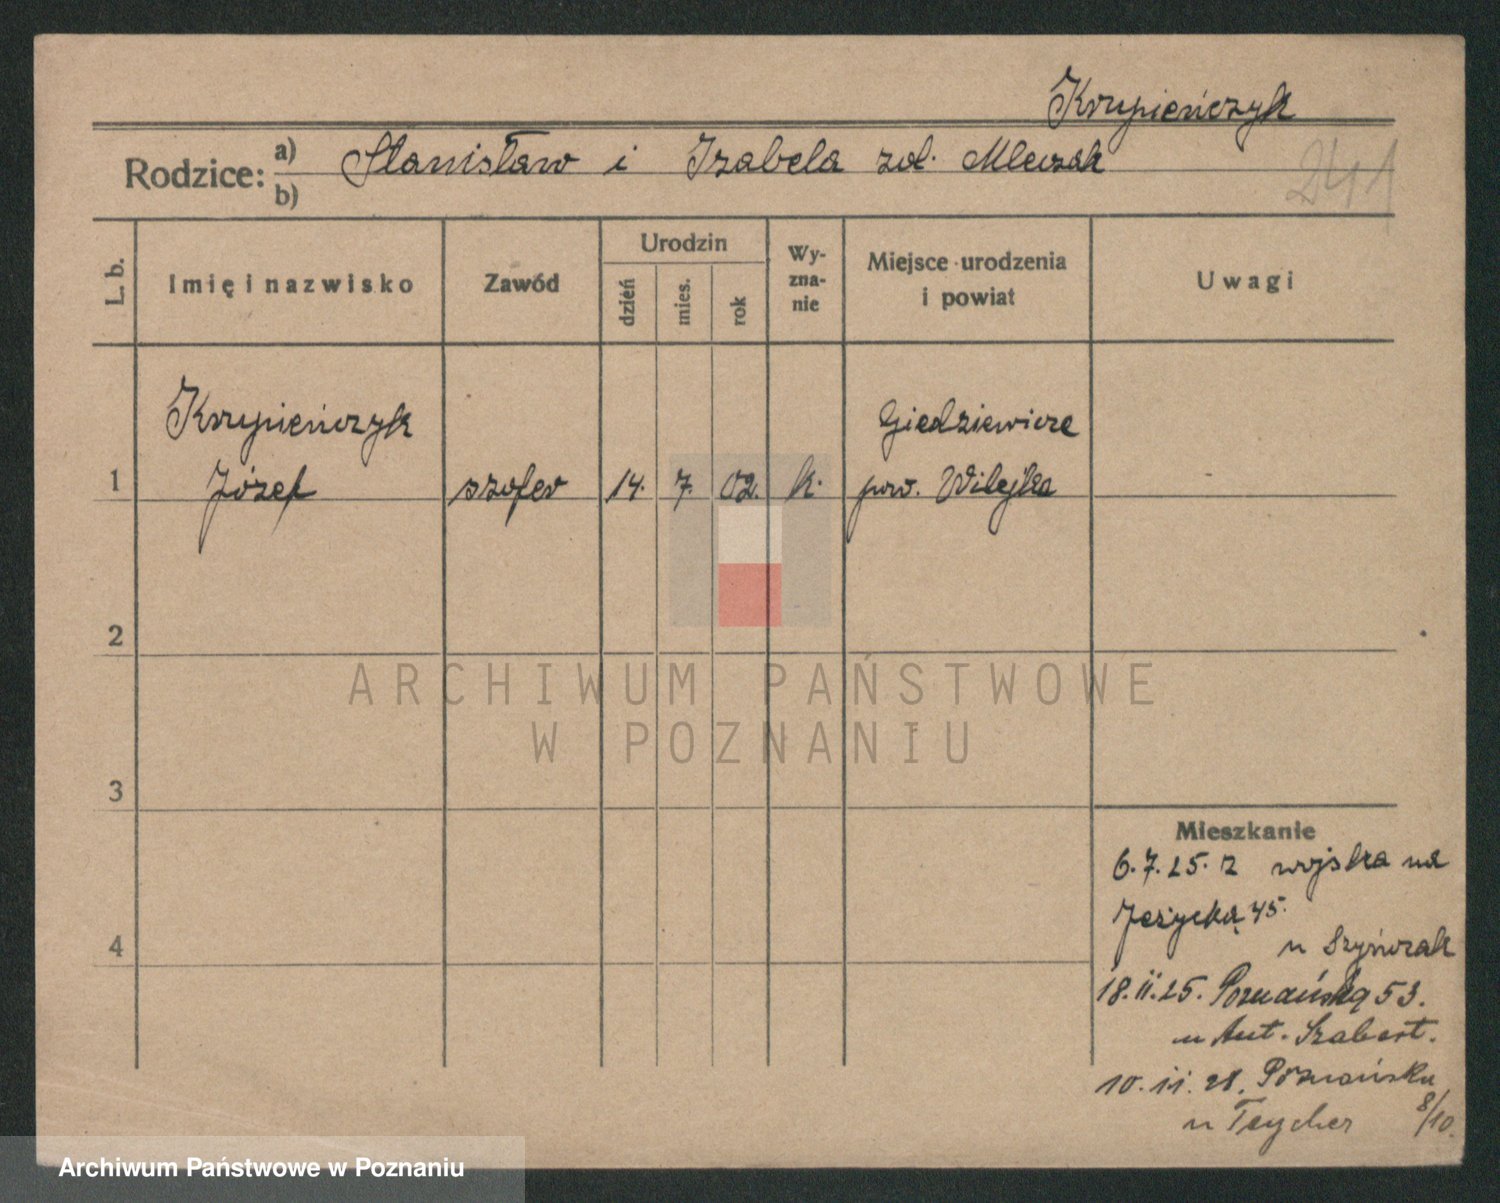 Krupieńczyk
Rodzice: a) Stanisław i Izabela zd. Mleczak
b)
241
L. b. Imię i nazwisko Zawód Urodzin dzień mies. rok Wy-zna-nie Miejsce urodzenia i powiat Uwagi
Krupieńczyk Giedziewicze
1 Józef szofer 14. 7. 02. k. pow. Wilejka
2
ARCHIWUM PAŃSTWOWE
W POZNANIU
3
Mieszkanie
6.7.25. z wojska na
Jeżycką 45.
4
u
18.11.25. Poznańska 53.
u Ant. Szabert.
10.11.28. Poznańska
u Teycher 8/10.
Archiwum Państwowe w Poznaniu